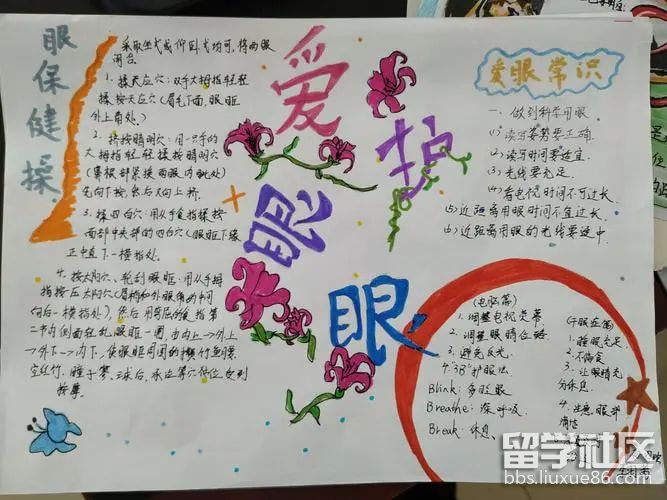 眼保健操
采取坐式或仰卧式均可,将两眼
闭合
1. 揉天应穴:双手大拇指轻轻
揉按天应穴(眉毛下面,眼眶
外上角处)
2. 挤按睛明穴:用一只手的
大拇指轻轻揉按睛明穴
(鼻根部紧挨两眼内眦处)
先向下按,然后又向上挤。
3. 揉四白穴:用双手食指揉按
面部中央部的四白穴(眼眶下缘
正中直下一横指处)
4. 按太阳穴、轮刮眼眶:用双手拇
指按压太阳穴(眉梢和外眼角的中间
向后一横指处),然后用弯屈的食指第
二节内侧面轻刮眼眶一圈,由内上→外上
→外下→内下,使眼眶周围的攒竹鱼腰
爱护眼眼
爱眼常识
一、做到科学用眼
(1) 读写姿势要正确
(2) 读写时间要适宜
(3) 光线要充足
(4) 看电视时间不可过长
(5) 近距离用眼时间不宜过长
近距离用眼的光线要适中
(电脑篇)
1. 调整电视荧幕
2. 调整眼睛位路
3. 避免反光
4. "3B"护眼法
Blink: 多眨眼
Breathe: 深呼吸
Break: 休息
1. 睡眠充足
2. 不偏食
3. 让眼睛充
分休息
4. 注意眼部
清洁
留学社区
bbs.liuxue86.com